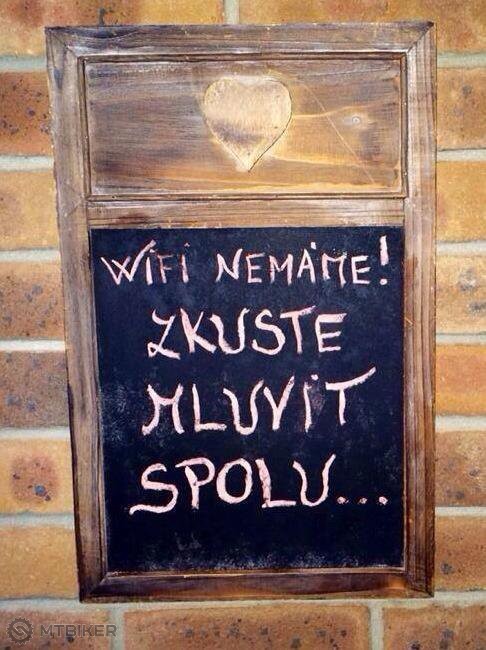 WiFi NEMÁME!
ZKUSTE
MLUViT
SPOLU...
MTBIKER